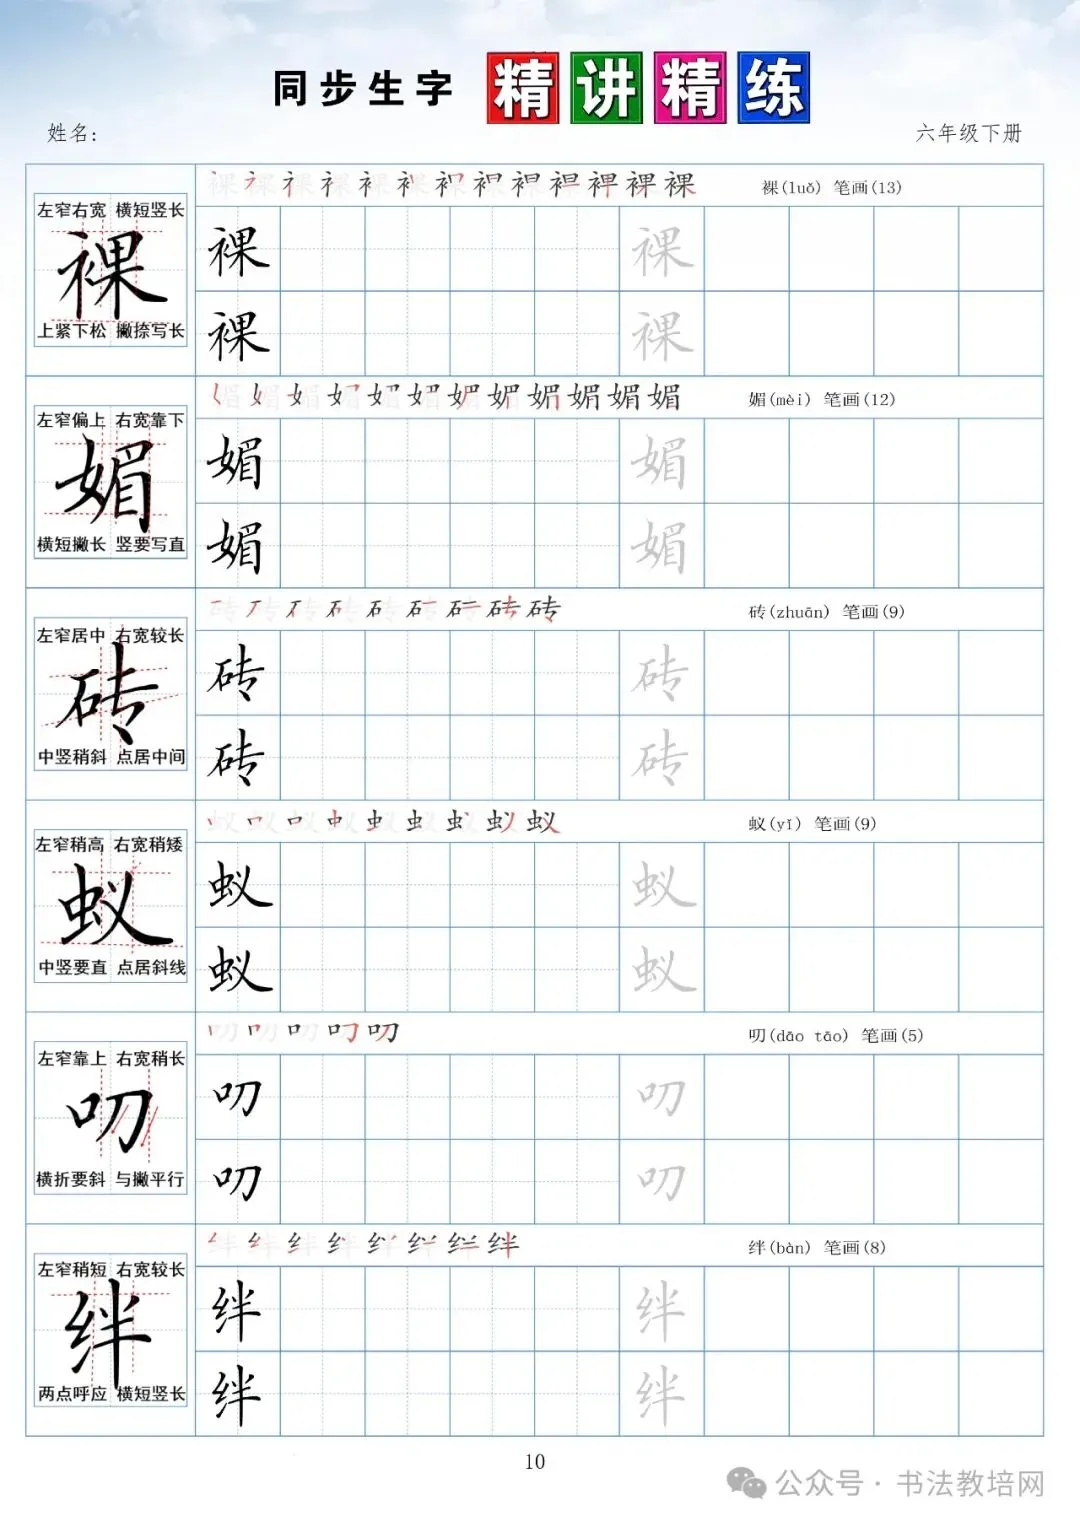 同步生字 精讲精练
姓名:
六年级下册
左窄右宽 横短竖长
裸
上紧下松 撇捺写长
裸(luǒ) 笔画(13)
裸 裸
裸 裸
左窄偏上 右宽靠下
媚
横短撇长 竖要写直
媚(mèi) 笔画(12)
媚 媚
媚 媚
左窄居中 右宽较长
砖
中竖稍斜 点居中间
砖(zhuān) 笔画(9)
砖 砖
砖 砖
左窄稍高 右宽稍矮
蚁
中竖要直 点居斜线
蚁(yǐ) 笔画(9)
蚁 蚁
蚁 蚁
左窄靠上 右宽稍长
叨
横折要斜 与撇平行
叨(dāo tāo) 笔画(5)
叨 叨
叨 叨
左窄稍短 右宽较长
绊
两点呼应 横短竖长
绊(bàn) 笔画(8)
绊 绊
绊 绊
10
公众号·书法教培网